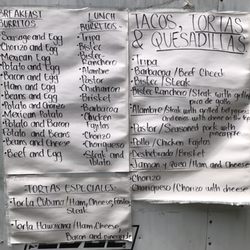 BREAKFAST
BURRITOS
Sausage and Egg
Chorizo and Egg
Mexican Egg
Potato and Egg
Bacon and Egg
Ham and Egg
Beans and Egg
Potato and Chorizo
Mexican Potato
Potato and Bacon
Potato and Beans
Bacon and Beans
Beef and Egg
LUNCH
BURRITOS
Tripa
Bistec
Bistec
Ranchero
Alambre
Pastor
Chicharron
Brisket
Barbacoa
Chicken
Fajitas
Chorizo
Choriqueso
Steak and
Potato
TORTAS ESPECIALES
Torta Cubana / Ham, Cheese,
Steak
Torta Hawaiana / Ham, Cheese,
Bacon and pineapple
TACOS, TORTAS
& QUESADILLAS
Tripa
Barbacoa / Beef Cheek
Bistec / Steak
Bistec Ranchero / Steak with grilled
pico de gallo
Alambre / Steak with grilled bell peppers
and onions with cheese on the top
Pastor / Seasoned pork with
pineapple
Pollo / Chicken Fajitas
Deshebrada / Brisket
Jamon y Queso / Ham and Cheese
Chorizo
Choriqueso / Chorizo with cheese